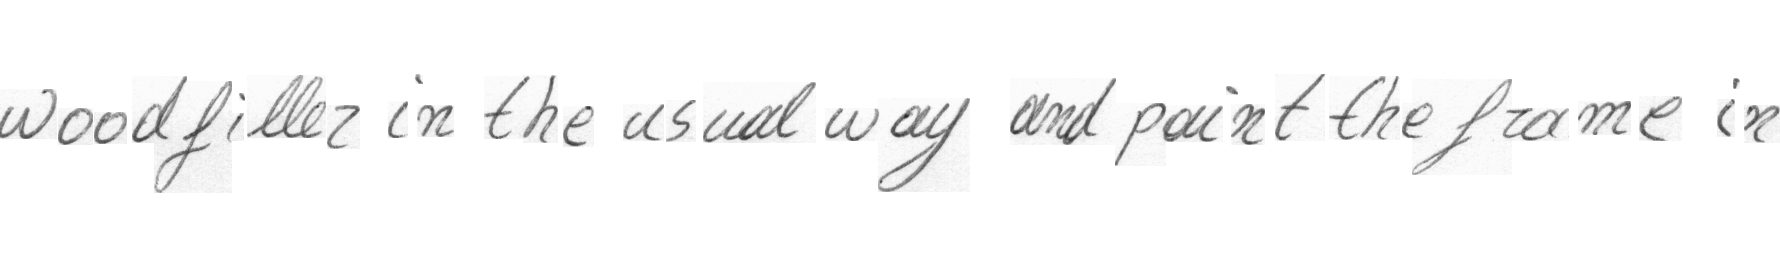 wood filler in the usual way and paint the frame in